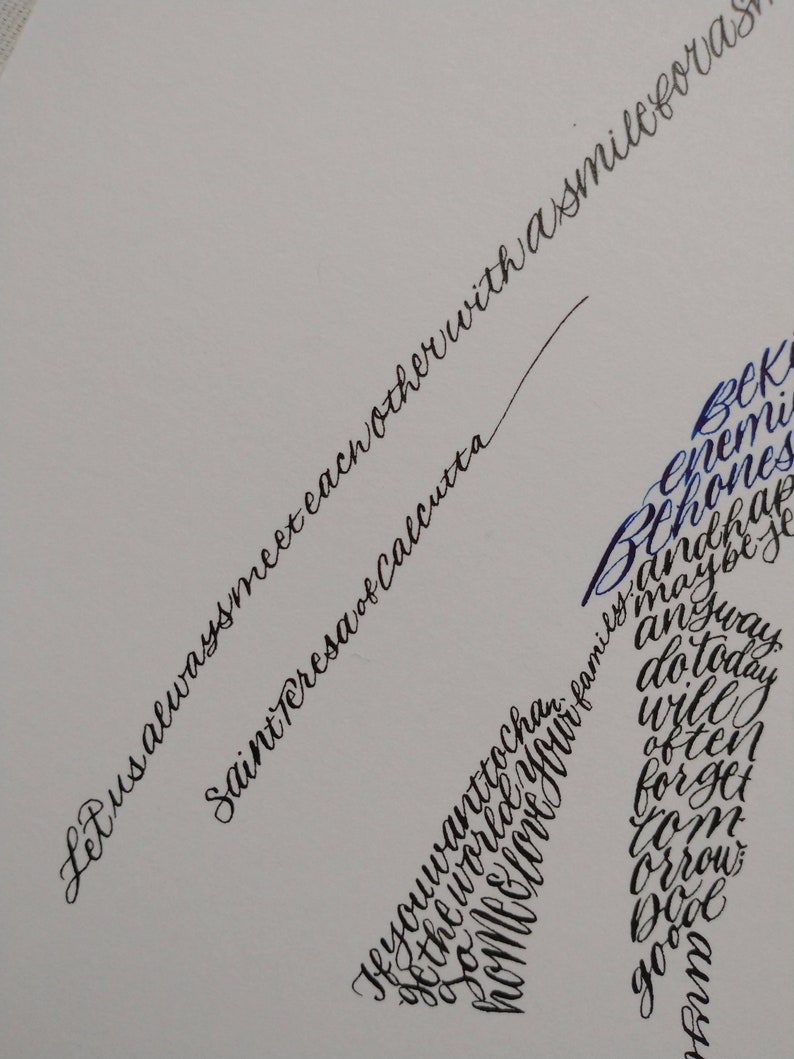 Let us always meet each other with a smile for a
Saint Teresa of Calcutta
If you want to chan
ge the world
go
home & love your family.
Be
enemi
Be hones
and hap
may be je
anyway.
do today
will
often
forget
tom-
orrow;
Do
good